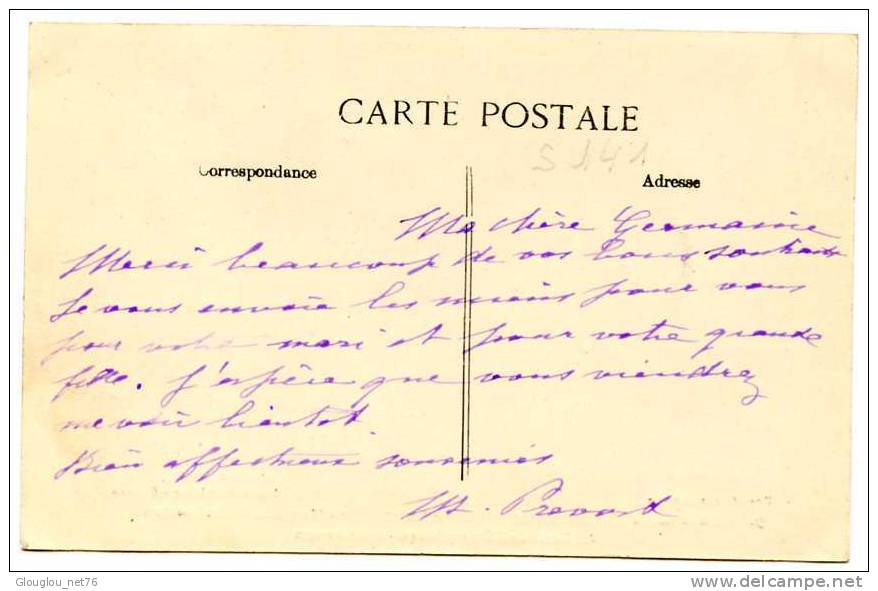 CARTE POSTALE
S 141
Correspondance
Adresse
Ma chère Germaine
Merci beaucoup de vos bons souhaits
Je vous envoie les miens pour vous
pour votre mari et pour votre grande
fille. J'espère que vous viendrez
me voir bientot.
Bien affectueux souvenirs
M. Prevost
Glouglou_net76
www.delcampe.net